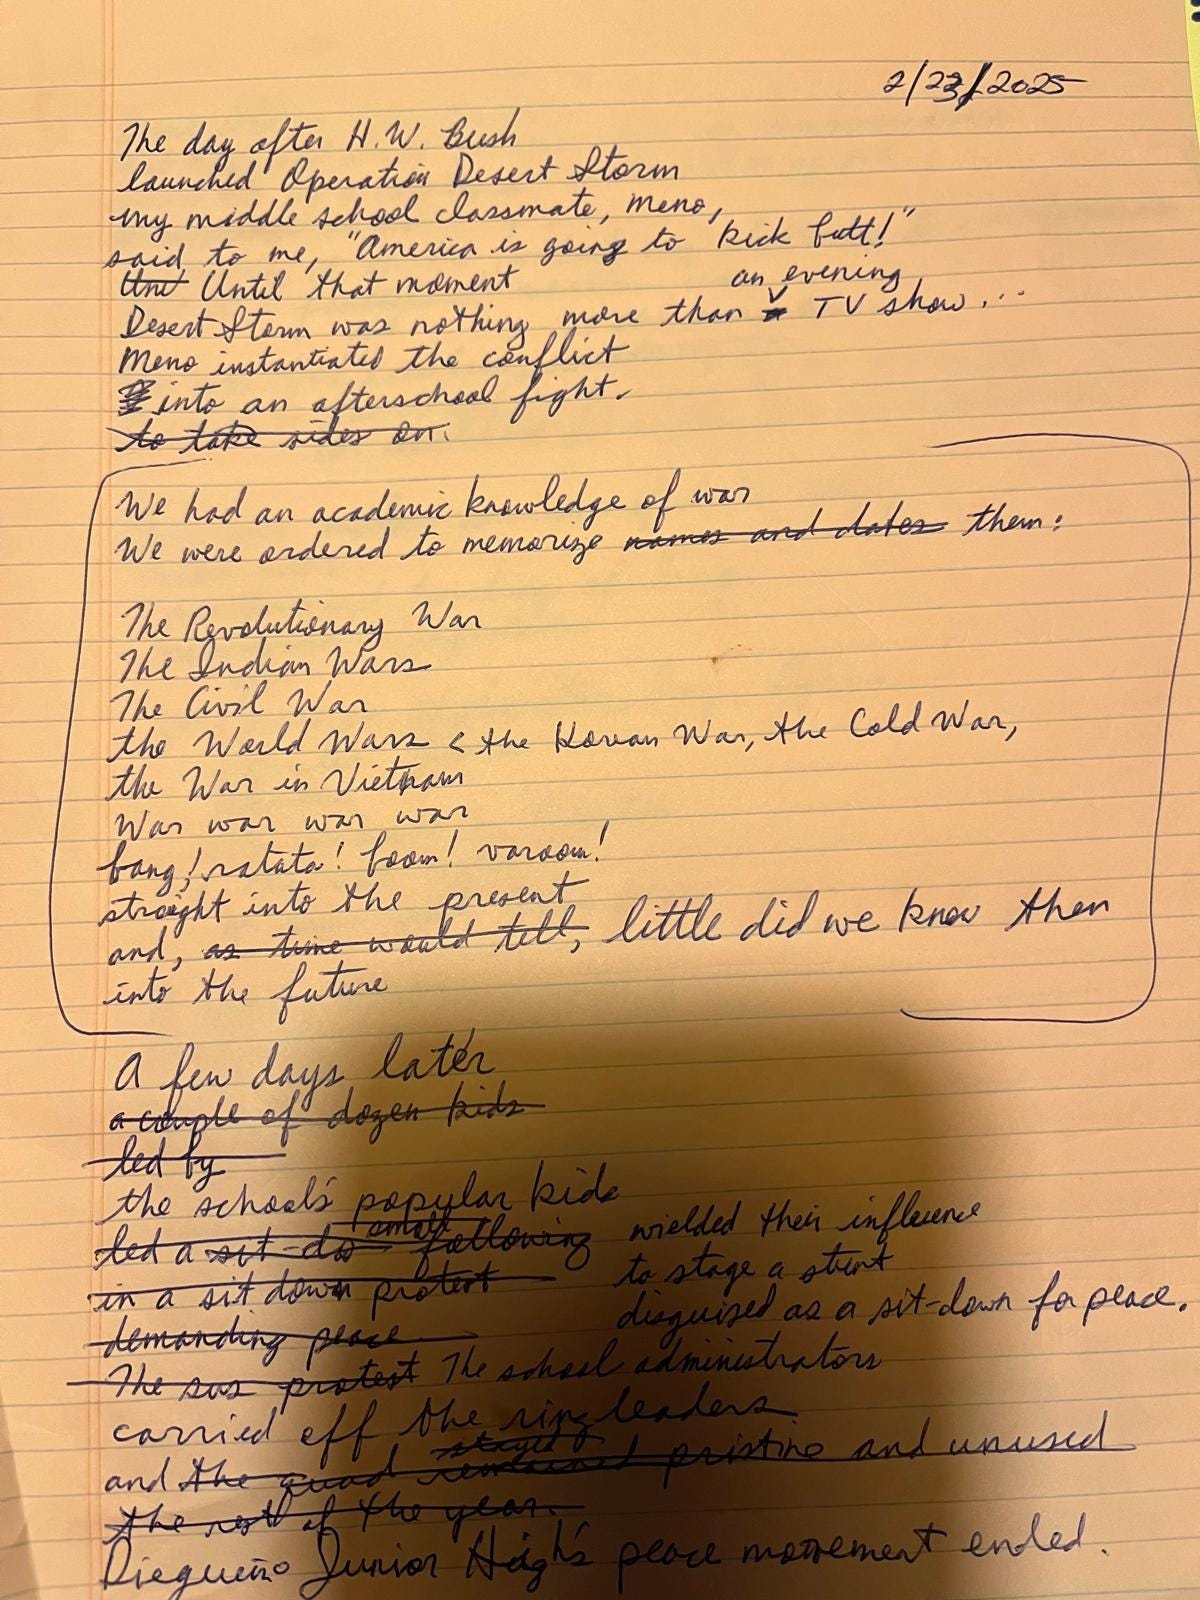 2/23/2025
The day after H.W. Bush
launched Operation Desert Storm
my middle school classmate, Meno,
said to me, "America is going to kick butt!"
Unt Until that moment
an evening
Desert Storm was nothing more than a TV show...
Meno instantiated the conflict
into an afterschool fight.
to take sides on.
We had an academic knowledge of war
We were ordered to memorize names and dates them:
The Revolutionary War
The Indian Wars
The Civil War
the World Wars < the Korean War, the Cold War,
the War in Vietnam
War war war war
bang! ratata! boom! varoom!
straight into the present
and, as time would tell, little did we know then
into the future
A few days later
a couple of dozen kids
led by
the school's popular kids
small
led a sit-do following wielded their influence
in a sit down protest to stage a stunt
demanding peace disguised as a sit-down for peace.
The sus protest The school administrators
carried off the ringleaders
stayed
and the quad remained pristine and unused
the rest of the year.
Diegueño Junior High's peace movement ended.